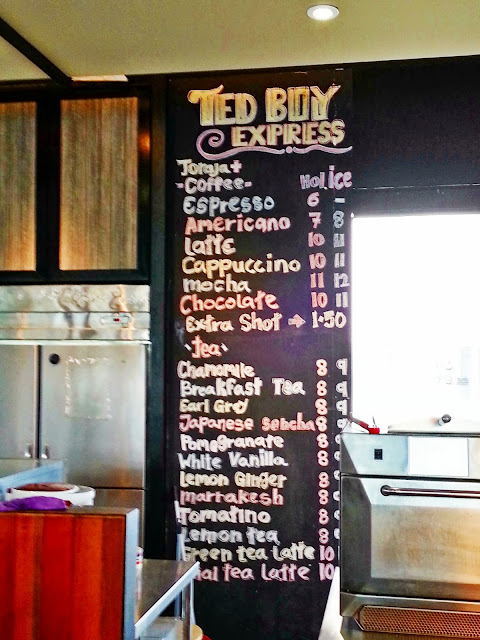 TED BOY
EXPRESS
Toraja+
-Coffee- Hot ice
Espresso 6 -
Americano 7 8
latte 10 11
Cappuccino 10 11
mocha 11 12
Chocolate 10 11
Extra Shot → 1.50
`tea`
Chamomile 8 9
Breakfast Tea 8 9
Earl Grey 8 9
Japanese sencha 8 9
Pomegranate 8 9
White Vanilla 8 9
Lemon Ginger 8 9
marrakesh 8 9
Tomatino 8 9
Lemon tea 8 9
Green tea Latte 10
tea Latte 10